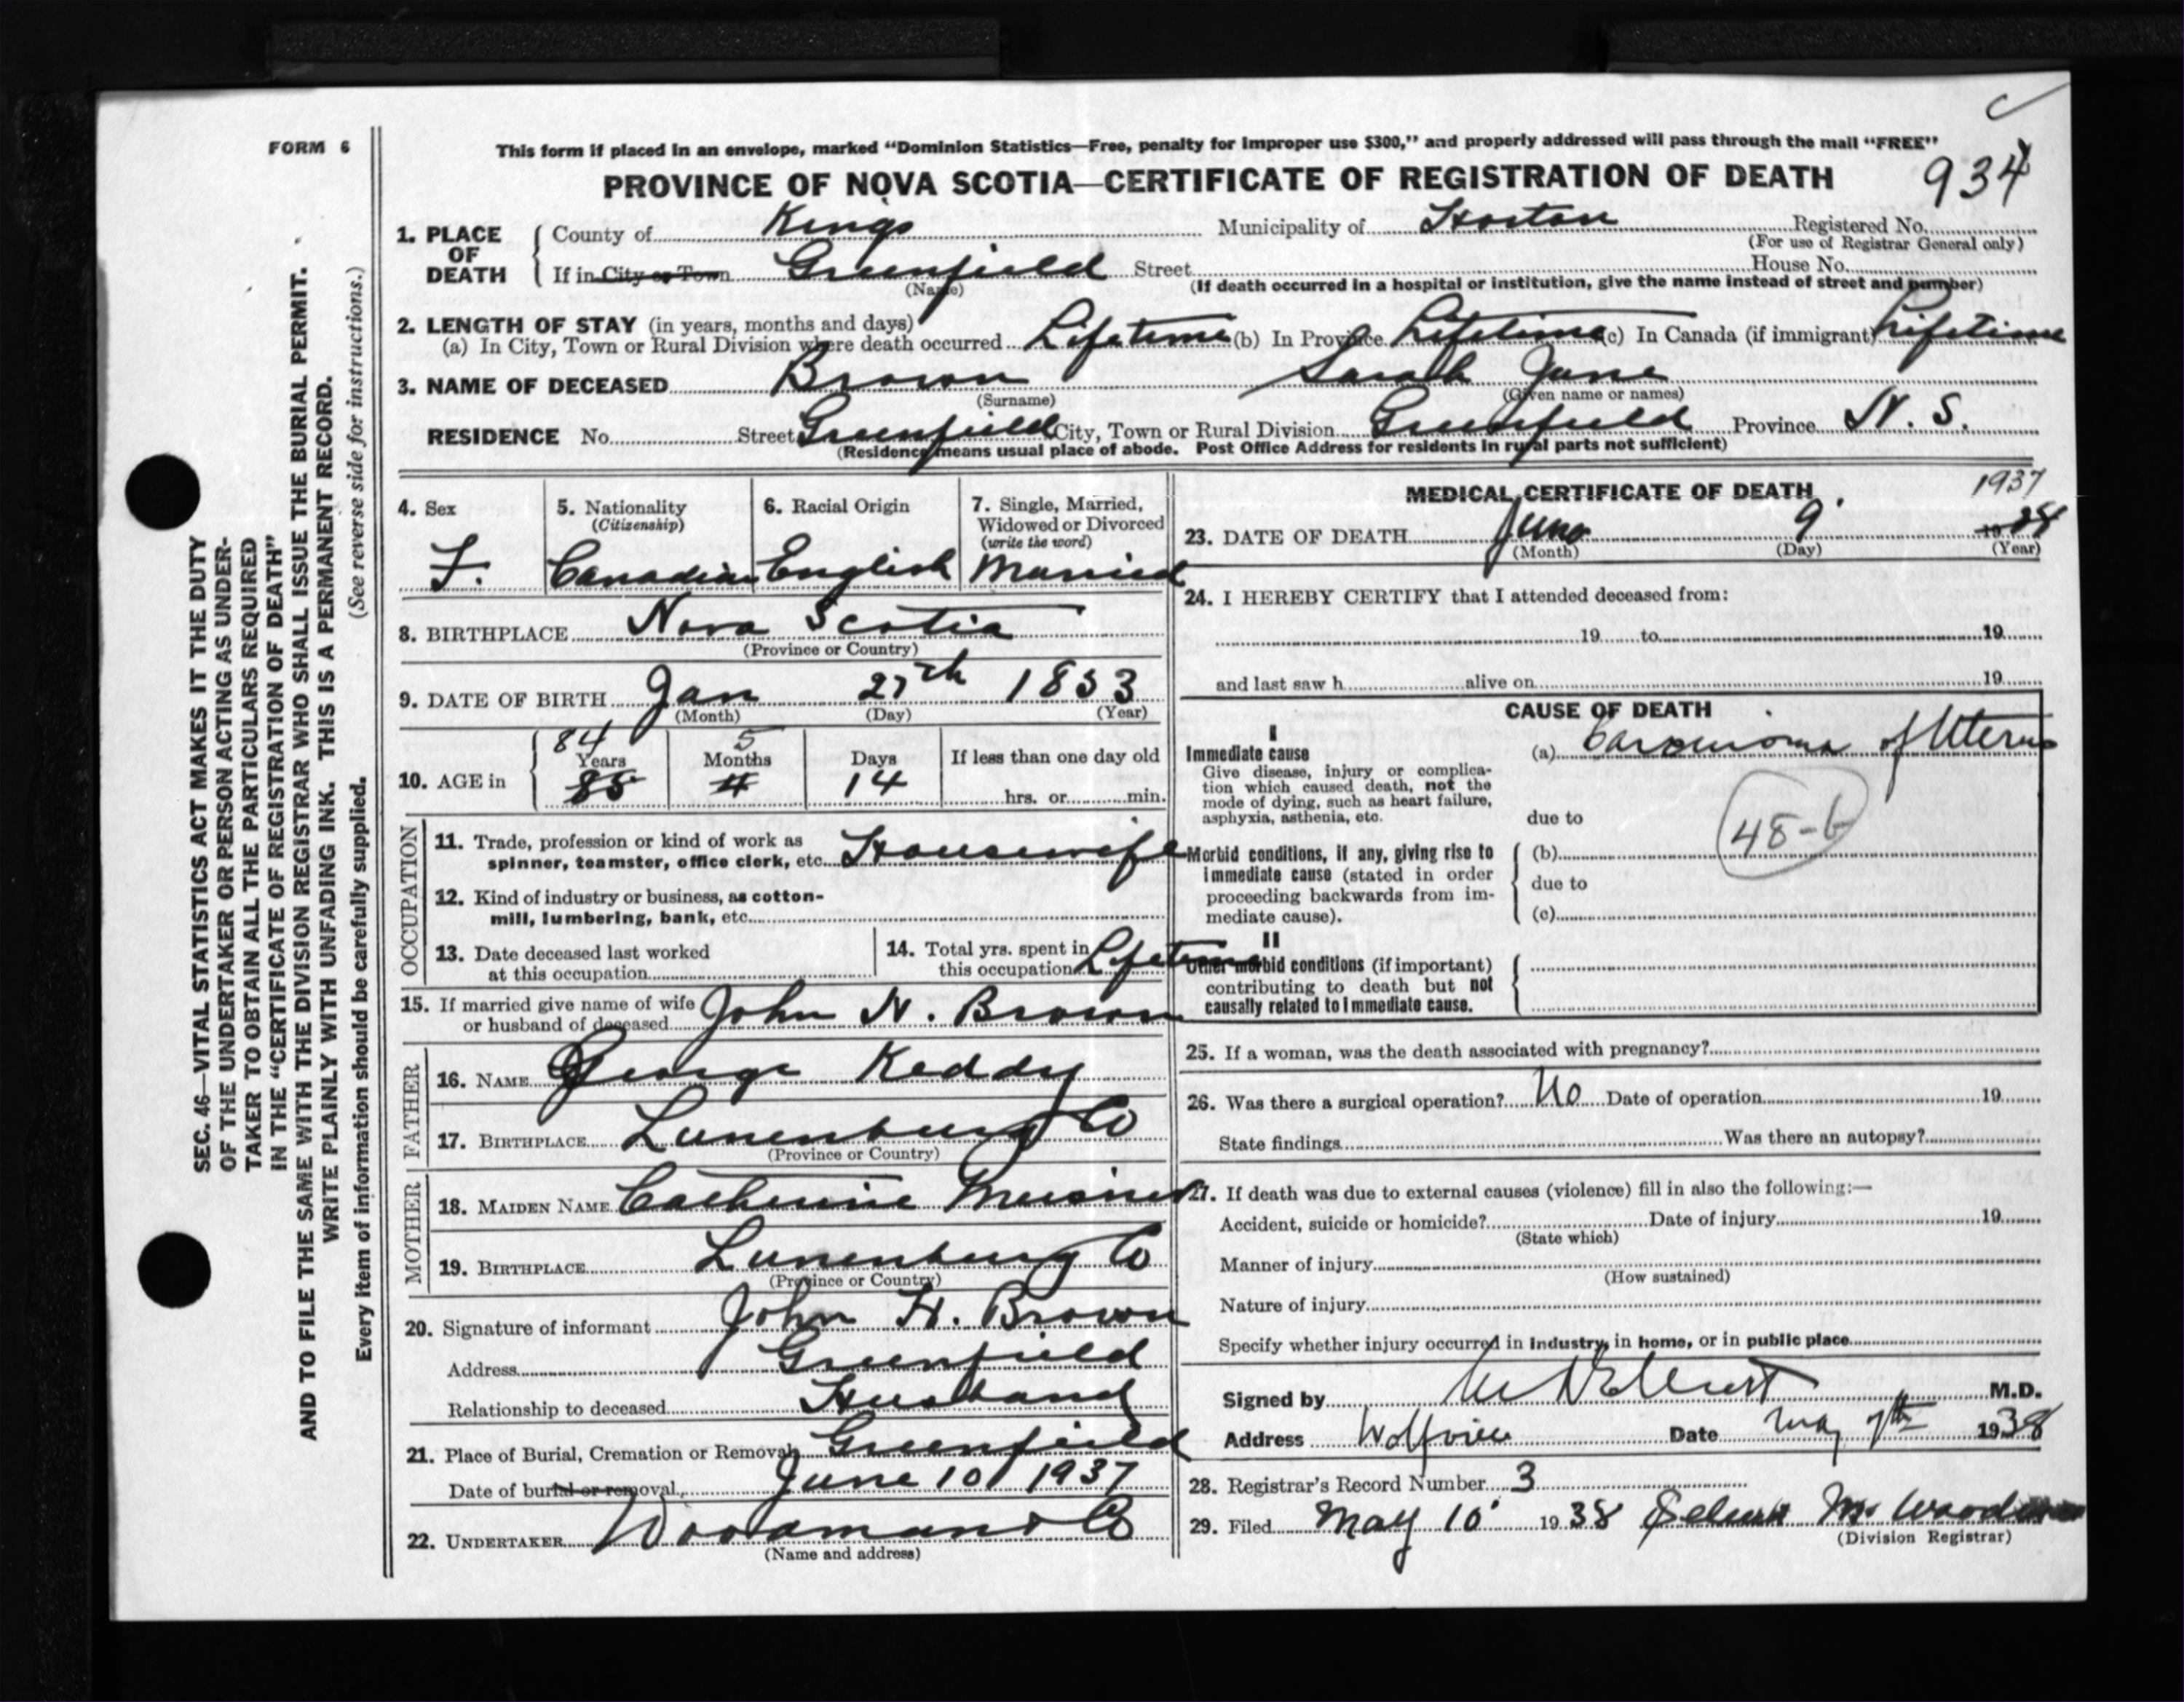 FORM 6
This form if placed in an envelope, marked “Dominion Statistics—Free, penalty for improper use $300,” and properly addressed will pass through the mail “FREE”
PROVINCE OF NOVA SCOTIA—CERTIFICATE OF REGISTRATION OF DEATH 934
1. PLACE OF DEATH County of Kings Municipality of Horton Registered No.
(For use of Registrar General only)
If in City or Town Greenfield Street House No.
(Name) (If death occurred in a hospital or institution, give the name instead of street and number)
2. LENGTH OF STAY (in years, months and days)
(a) In City, Town or Rural Division where death occurred Lifetime (b) In Province Lifetime (c) In Canada (if immigrant) Lifetime
3. NAME OF DECEASED Brown Sarah Jane
(Surname) (Given name or names)
RESIDENCE No. Street Greenfield City, Town or Rural Division Greenfield Province N. S.
(Residence means usual place of abode. Post Office Address for residents in rural parts not sufficient)
4. Sex
F.
5. Nationality
(Citizenship)
Canadian
6. Racial Origin
English
7. Single, Married,
Widowed or Divorced
(write the word)
Married
8. BIRTHPLACE Nova Scotia
(Province or Country)
9. DATE OF BIRTH Jan 27th 1853
(Month) (Day) (Year)
84 5
Years Months Days If less than one day old
10. AGE in 85 4 14 hrs. or min.
OCCUPATION
11. Trade, profession or kind of work as
spinner, teamster, office clerk, etc. Housewife
12. Kind of industry or business, as cotton-
mill, lumbering, bank, etc.
13. Date deceased last worked
at this occupation
14. Total yrs. spent in
this occupation Lifetime
15. If married give name of wife
or husband of deceased John H. Brown
FATHER
16. NAME George Keddy
17. BIRTHPLACE Lunenburg Co
(Province or Country)
MOTHER
18. MAIDEN NAME Catherine
19. BIRTHPLACE Lunenburg Co
(Province or Country)
20. Signature of informant John H. Brown
Address Greenfield
Relationship to deceased Husband
21. Place of Burial, Cremation or Removal Greenfield
Date of burial or removal June 10 1937
22. UNDERTAKER Woodman & Co
(Name and address)
MEDICAL CERTIFICATE OF DEATH 1937
23. DATE OF DEATH June 9 1938
(Month) (Day) (Year)
24. I HEREBY CERTIFY that I attended deceased from:
19 to 19
and last saw h alive on 19
CAUSE OF DEATH
I
Immediate cause (a) Carcinoma of Uterus
Give disease, injury or complica-
tion which caused death, not the
mode of dying, such as heart failure,
asphyxia, asthenia, etc. due to
48-b
Morbid conditions, if any, giving rise to (b)
immediate cause (stated in order
proceeding backwards from im- due to
mediate cause). (c)
II
Other morbid conditions (if important)
contributing to death but not
causally related to immediate cause.
25. If a woman, was the death associated with pregnancy?
26. Was there a surgical operation? No Date of operation 19
State findings Was there an autopsy?
27. If death was due to external causes (violence) fill in also the following:—
Accident, suicide or homicide? Date of injury 19
(State which)
Manner of injury
(How sustained)
Nature of injury
Specify whether injury occurred in industry, in home, or in public place
Signed by M.D.
Address Wolfville Date May 7th 1938
28. Registrar's Record Number 3
29. Filed May 10 1938
(Division Registrar)
SEC. 46—VITAL STATISTICS ACT MAKES IT THE DUTY
OF THE UNDERTAKER OR PERSON ACTING AS UNDER-
TAKER TO OBTAIN ALL THE PARTICULARS REQUIRED
IN THE “CERTIFICATE OF REGISTRATION OF DEATH”
AND TO FILE THE SAME WITH THE DIVISION REGISTRAR WHO SHALL ISSUE THE BURIAL PERMIT.
WRITE PLAINLY WITH UNFADING INK. THIS IS A PERMANENT RECORD.
Every item of information should be carefully supplied. (See reverse side for instructions.)